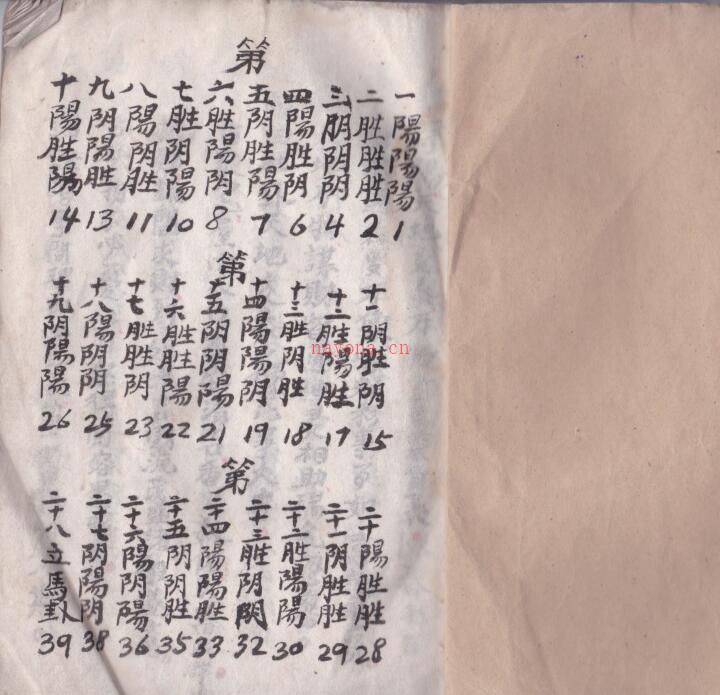 第
一陽陽陽1
二胜胜胜2
三阴阴阴4
四陽胜阴6
五阴胜陽7
六胜陽阴8
七胜阴陽10
八陽阴胜11
九阴陽胜13
十陽胜陽14
第
十一阴胜阴15
十二胜陽胜17
十三胜阴胜18
十四陽陽阴19
十五阴阴陽21
十六胜胜陽22
十七胜胜阴23
十八陽阴阴25
十九阴陽陽26
第
二十陽胜胜28
二十一阴胜胜29
二十二胜陽陽30
二十三胜阴阴32
二十四陽陽胜33
二十五阴阴胜35
二十六陽阴陽36
二十七阴陽阴38
二十八立馬卦39
nayona.cn